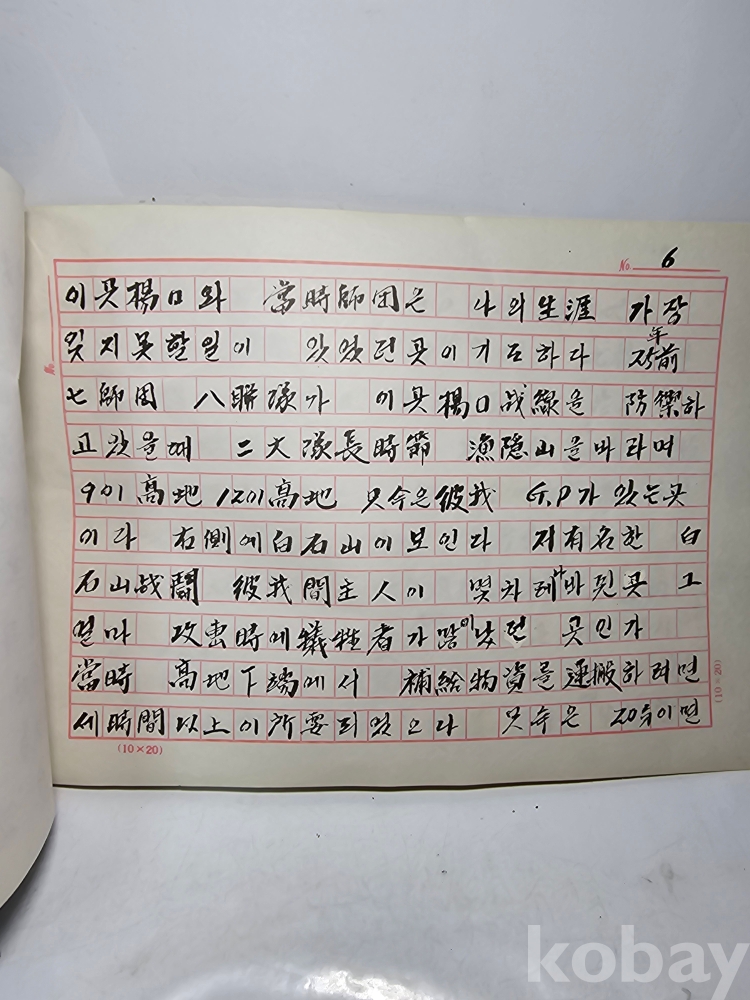 No 6
이곳楊口와 當時師団은 나의生涯 가장
잊지못할일이 있었던곳이기도하다 24年前
七師団 八聯隊가 이곳楊口战線을 防禦하
고있을때 二大隊長時節 漁隠山을바라며
901高地 1201高地 只今은彼我 G.P가 있는곳
이다 右側에白石山이보인다 저有名한 白
石山战鬪 彼我間主人이 몇차레나바뀐곳 그
얼마 攻擊時에犠牲者가많이났던 곳인가
當時 高地下端에서 補給物資를運搬하려면
세時間以上이所要되었으나 只今은 20分이면
(10×20)
(10×20)
kobay